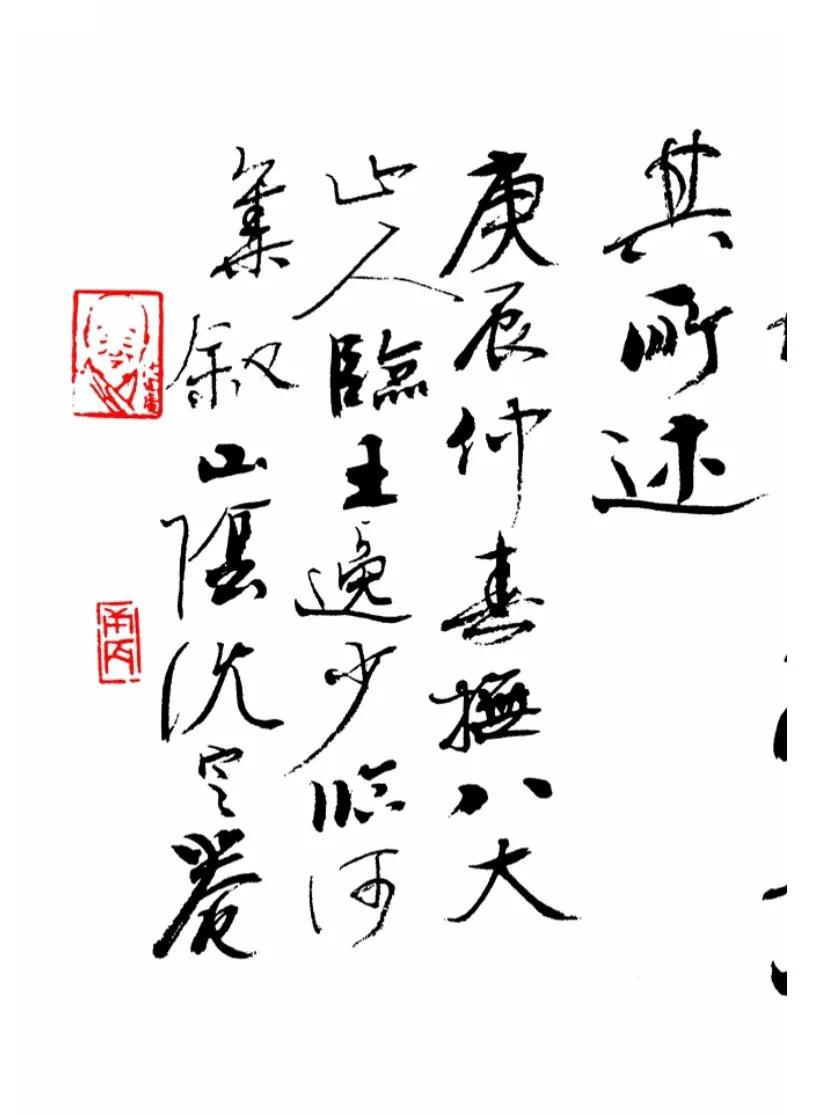 其所述
庚辰仲春撫八大
山人臨王逸少臨河
集叙山陰沈定菴